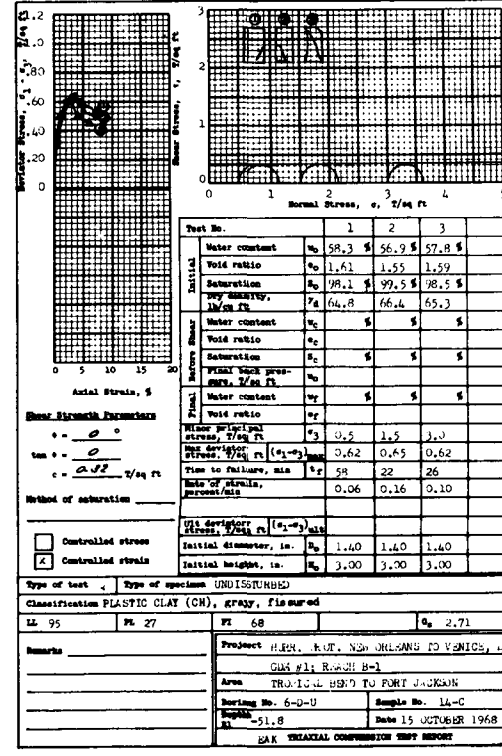 3
1.2
1.0
.80
.60
.40
.20
0
Deviator Stress, σ1 - σ3, T/sq ft
Shear Stress, τ, T/sq ft
3
2
1
0
1 2 3
0 1 2 3 4 5
Normal Stress, σ, T/sq ft
0 5 10 15 20
Axial Strain, %
Shear Strength Parameters
φ = 0 °
tan φ = 0
c = 0.32 T/sq ft
Method of saturation
Controlled stress
x Controlled strain
Test No. 1 2 3
Initial
Water content w₀ 58.3 % 56.9 % 57.8 %
Void ratio e₀ 1.61 1.55 1.59
Saturation S₀ 98.1 % 99.5 % 98.5 %
Dry density, lb/cu ft γd 64.8 66.4 65.3
Before Shear
Water content wc % % %
Void ratio ec
Saturation Sc % % %
Final back pressure, T/sq ft u₀
Final
Water content wf % % %
Void ratio ef
Minor principal stress, T/sq ft σ3 0.5 1.5 3.0
Max deviator stress, T/sq ft (σ1-σ3)max 0.62 0.65 0.62
Time to failure, min tf 58 22 26
Rate of strain, percent/min 0.06 0.16 0.10
Ult deviator stress, T/sq ft (σ1-σ3)ult
Initial diameter, in. D₀ 1.40 1.40 1.40
Initial height, in. H₀ 3.00 3.00 3.00
Type of test Type of specimen UNDISTURBED
Classification PLASTIC CLAY (CH), gray, fissured
LL 95 PL 27 PI 68 Gs 2.71
Remarks
Project HURR. PROT. NEW ORLEANS TO VENICE,
GDM #1; REACH B-1
Area TROPICAL BEND TO FORT JACKSON
Boring No. 6-D-U Sample No. 14-C
Depth El -51.8 Date 15 OCTOBER 1968
EAK TRIAXIAL COMPRESSION TEST REPORT